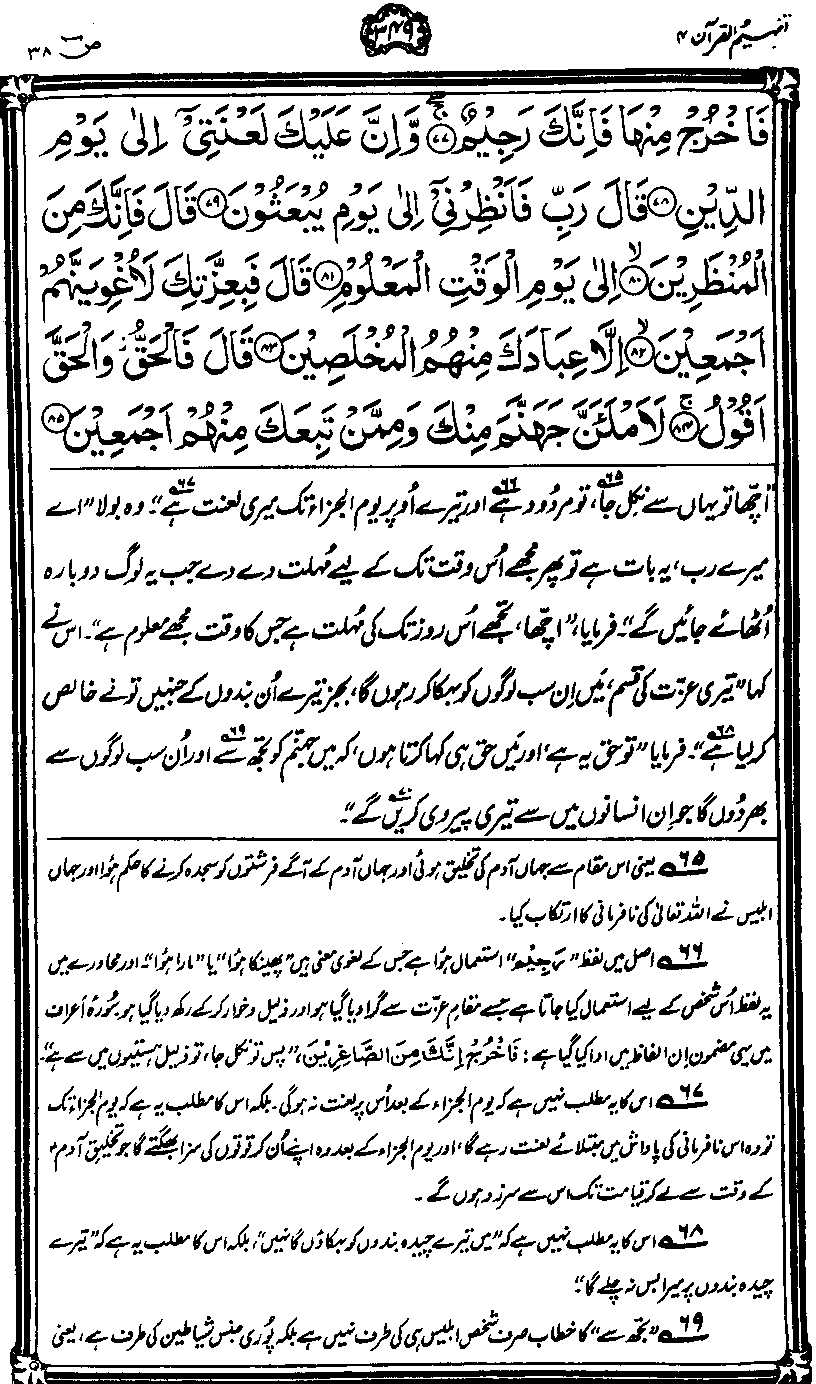 تفہیم القرآن ۴
۳۴۹
صٓ ۳۸
فَاخْرُجْ مِنْهَا فَاِنَّكَ رَجِيْمٌ ﴿۷۷﴾ وَّاِنَّ عَلَيْكَ لَعْنَتِيْۤ اِلٰى يَوْمِ
الدِّيْنِ ﴿۷۸﴾ قَالَ رَبِّ فَاَنْظِرْنِيْۤ اِلٰى يَوْمِ يُبْعَثُوْنَ ﴿۷۹﴾ قَالَ فَاِنَّكَ مِنَ
الْمُنْظَرِيْنَ ﴿۸۰﴾ اِلٰى يَوْمِ الْوَقْتِ الْمَعْلُوْمِ ﴿۸۱﴾ قَالَ فَبِعِزَّتِكَ لَاُغْوِيَنَّهُمْ
اَجْمَعِيْنَ ﴿۸۲﴾ اِلَّا عِبَادَكَ مِنْهُمُ الْمُخْلَصِيْنَ ﴿۸۳﴾ قَالَ فَالْحَقُّ وَالْحَقَّ
اَقُوْلُ ﴿۸۴﴾ لَاَمْلَئَنَّ جَهَنَّمَ مِنْكَ وَمِمَّنْ تَبِعَكَ مِنْهُمْ اَجْمَعِيْنَ ﴿۸۵﴾
"اچھا تو یہاں سے نکل جا۶۵، تو مردود ہے۶۶ اور تیرے اُوپر یوم الجزاء تک میری لعنت ہے۶۷"۔ وہ بولا "اے
میرے رب، یہ بات ہے تو پھر مجھے اُس وقت تک کے لیے مُہلت دے دے جب یہ لوگ دوبارہ
اُٹھائے جائیں گے"۔ فرمایا، "اچھا، تجھے اُس روز تک کی مُہلت ہے جس کا وقت مجھے معلوم ہے"۔ اس نے
کہا "تیری عزّت کی قسم، مَیں اِن سب لوگوں کو بہکا کر رہوں گا، بجز تیرے اُن بندوں کے جنہیں تو نے خالص
کر لیا ہے۶۸"۔ فرمایا "تو حق یہ ہے، اور مَیں حق ہی کہا کرتا ہوں، کہ میں جہنّم کو تجھ سے۶۹ اور اُن سب لوگوں سے
بھر دُوں گا جو اِن انسانوں میں سے تیری پیروی کریں گے۷۰"۔
۶۵ یعنی اس مقام سے جہاں آدم کی تخلیق ہوئی اور جہاں آدم کے آگے فرشتوں کو سجدہ کرنے کا حکم ہُوا اور جہاں
ابلیس نے اللہ تعالیٰ کی نافرمانی کا ارتکاب کیا۔
۶۶ اصل میں لفظ "رَجِیْم" استعمال ہُوا ہے جس کے لغوی معنی ہیں "پھینکا ہُوا" یا "مارا ہُوا"۔ اور محاورے میں
یہ لفظ اُس شخص کے لیے استعمال کیا جاتا ہے جسے مقامِ عزّت سے گرا دیا گیا ہو اور ذلیل و خوار کر کے رکھ دیا گیا ہو۔ سُورۂ اَعراف
میں یہی مضمون اِن الفاظ میں ادا کیا گیا ہے: فَاخْرُجْ اِنَّكَ مِنَ الصَّاغِرِيْنَ، "پس تو نکل جا، تو ذلیل ہستیوں میں سے ہے"۔
۶۷ اس کا یہ مطلب نہیں ہے کہ یوم الجزاء کے بعد اُس پر لعنت نہ ہوگی۔ بلکہ اس کا مطلب یہ ہے کہ یوم الجزاء تک
تو وہ اس نافرمانی کی پاداش میں مبتلائے لعنت رہے گا، اور یوم الجزاء کے بعد وہ اپنے اُن کرتوتوں کی سزا بھگتے گا جو تخلیقِ آدمؑ
کے وقت سے لے کر قیامت تک اس سے سرزد ہوں گے۔
۶۸ اس کا یہ مطلب نہیں ہے کہ "میں تیرے چیدہ بندوں کو بہکاؤں گا نہیں"، بلکہ اس کا مطلب یہ ہے کہ "تیرے
چیدہ بندوں پر میرا بس نہ چلے گا"۔
۶۹ "تجھ سے" کا خطاب صرف شخصِ ابلیس ہی کی طرف نہیں ہے بلکہ پُوری جنسِ شیاطین کی طرف ہے، یعنی